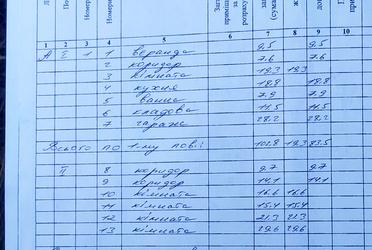 1 2 3 4 5 6 7 8 9 10
А І 1 1 веранда 9.5 9.5
2 коридор 7.6 7.6
3 кімната 18.3 18.3
4 кухня 18.8 18.8
5 ванна 7.9 7.9
6 кладова 11.5 11.5
7 гараж 28.2 28.2
Всього по 1-му пов: 101.8 18.3 83.5
ІІ 8 коридор 9.7 9.7
9 коридор 14.1 14.1
10 кімната 16.6 16.6
11 кімната 15.4 15.4
12 кімната 21.3 21.3
13 кімната 29.6 29.6